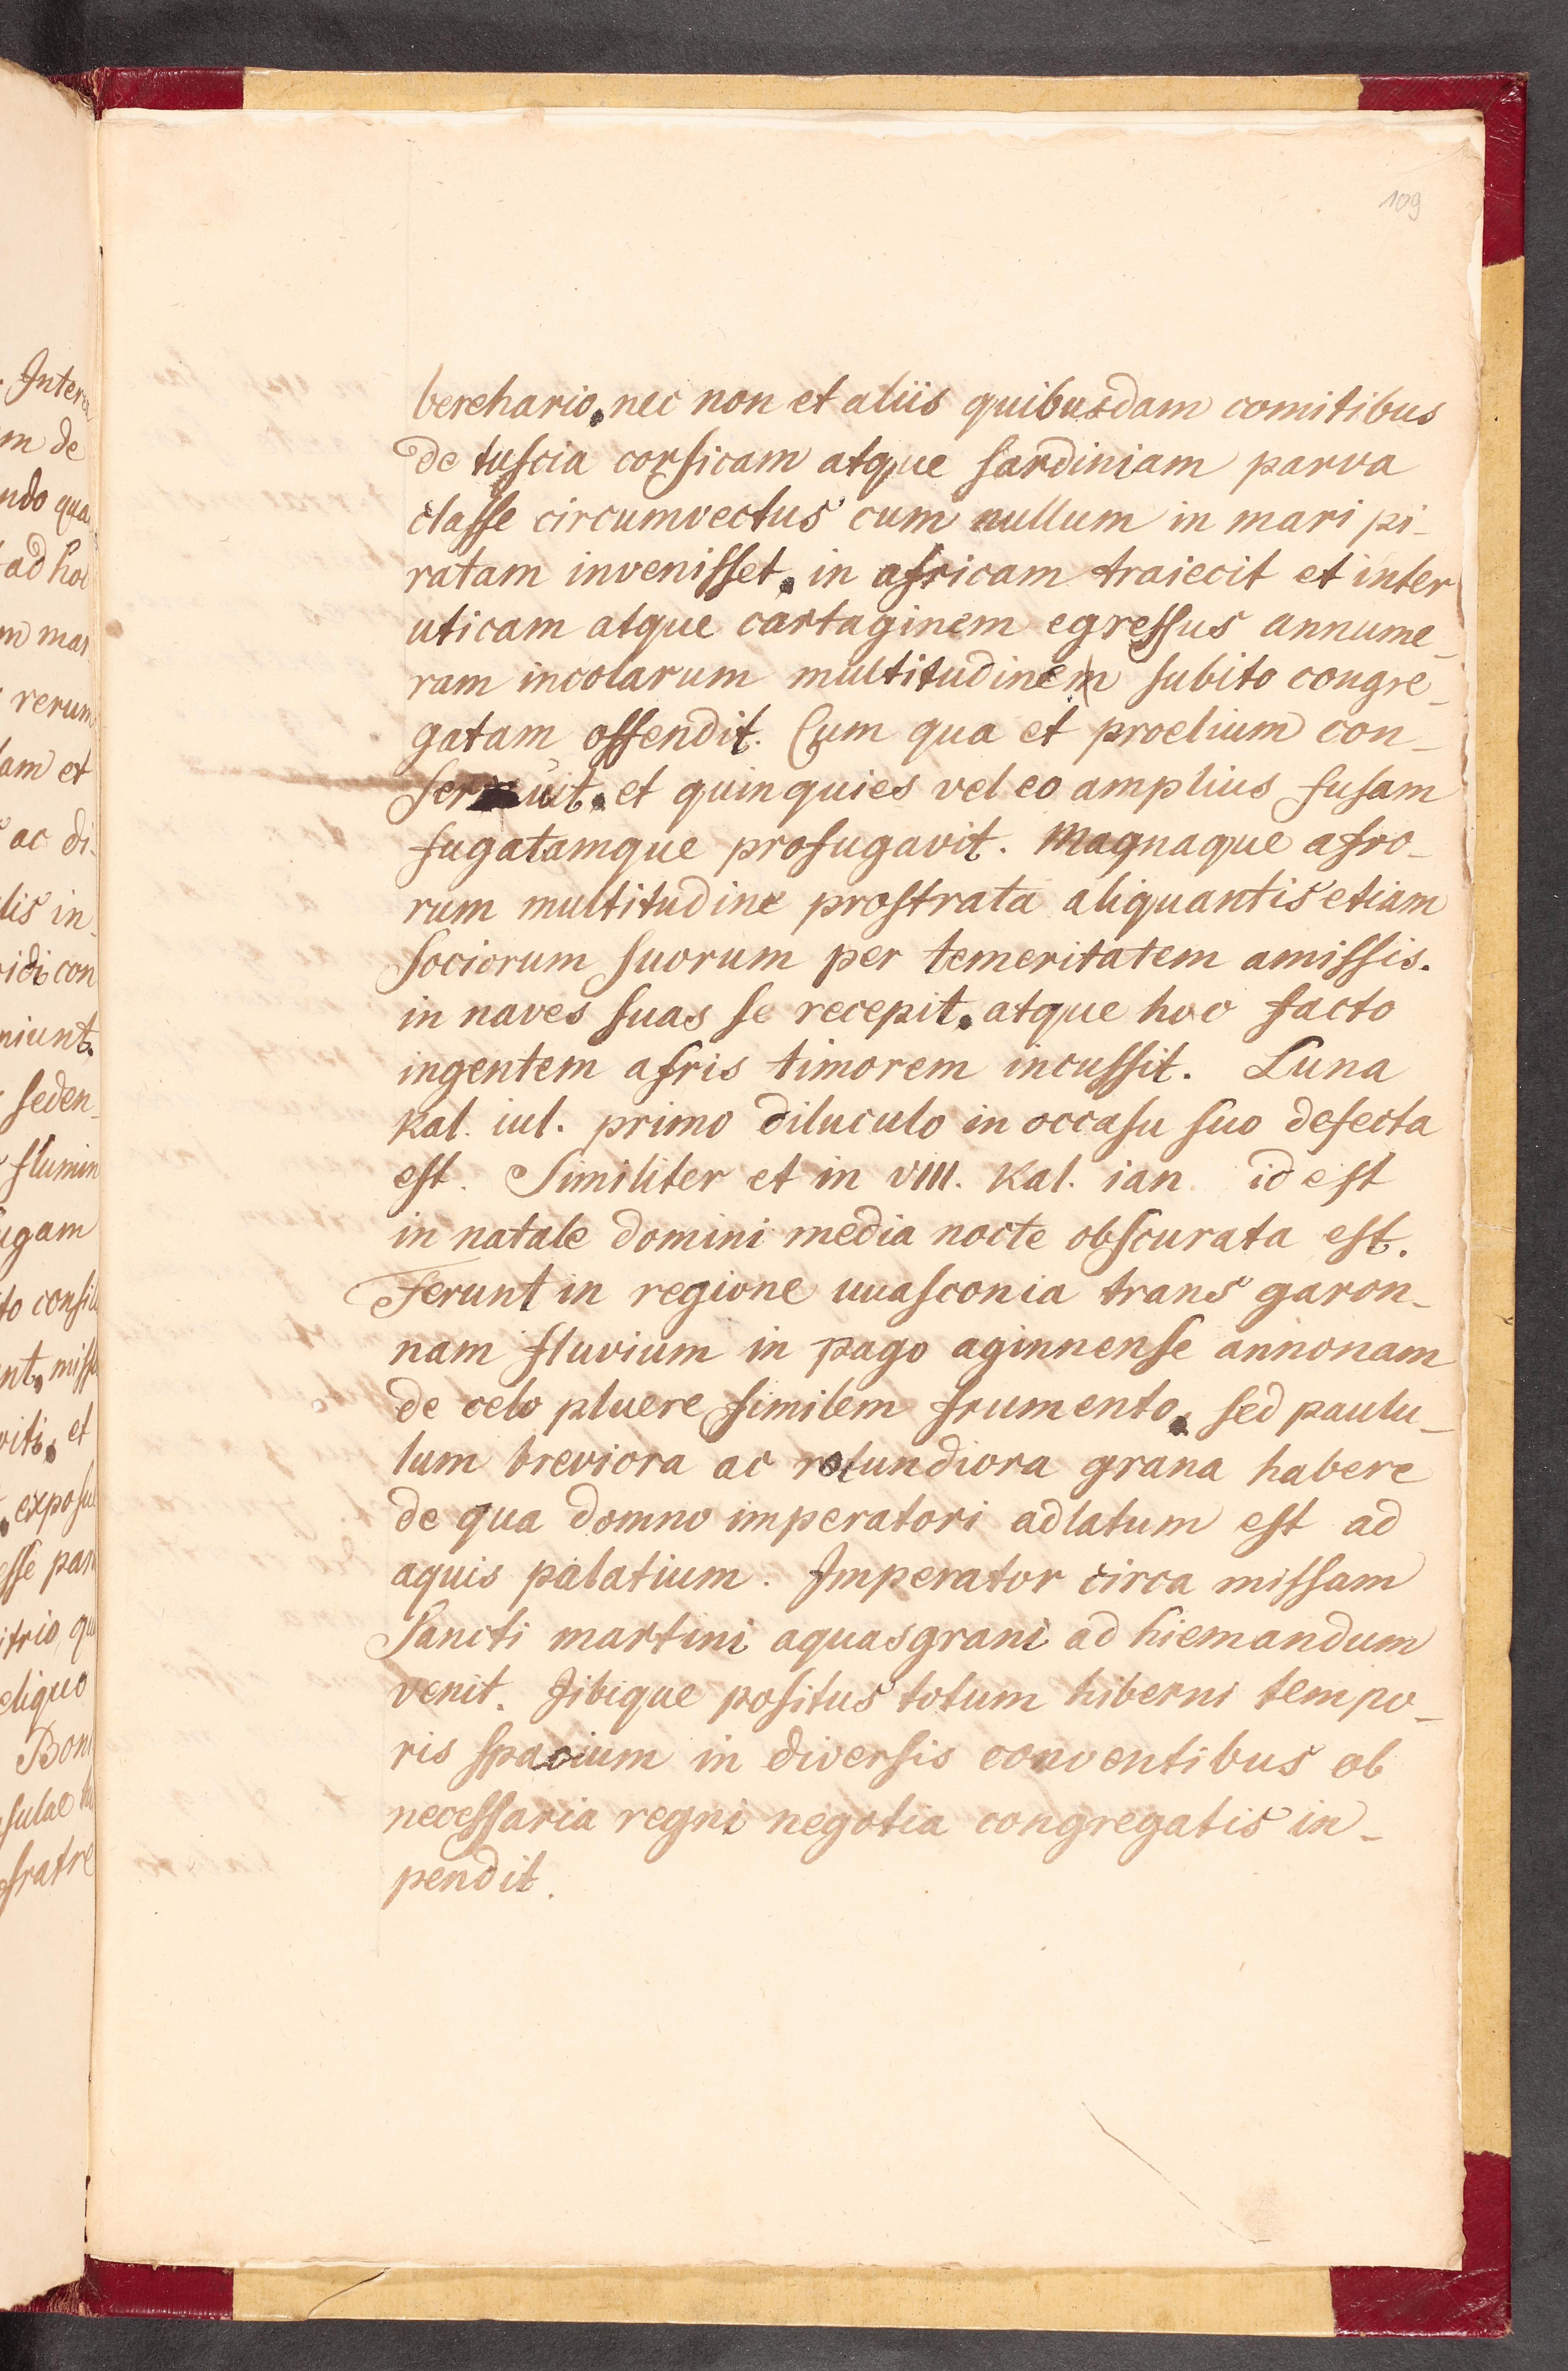 109
Inter
m de
ndo qua
ad hoc
m mar
rerum
am et
ac di-
lis in-
idi con
niunt.
seden-
flumin
ugam
to consil
nt, miss
viti, et
exposu
esse par
itrio, qu
eliquo
Bon
sulae
fratre
berehario, nec non et aliis quibusdam comitibus
de tuscia corsicam atque sardiniam parva
classe circumvectus cum nullum in mari pi-
ratam invenisset, in africam traiecit et inter
uticam atque cartaginem egressus annume-
ram incolarum multitudinem subito congre-
gatam offendit. Cum qua et proelium con-
seruit, et quinquies vel eo amplius fusam
fugatamque profugavit. Magnaque afro-
rum multitudine prostrata aliquantis etiam
sociorum suorum per temeritatem amissis.
in naves suas se recepit, atque hoc facto
ingentem afris timorem incussit. Luna
kal. iul. primo diluculo in occasu suo defecta
est. Similiter et in VIII. kal. ian id est
in natale domini media nocte obscurata est.
Ferunt in regione uuasconia trans garon-
nam fluvium in pago aginnense annonam
de celo pluere similem frumento, sed paulu-
lum breviora ac rotundiora grana habere
de qua domno imperatori adlatum est ad
aquis palatium. Imperator circa missam
Sancti martini aquasgrani ad hiemandum
venit. Jibique positus totum hiberni tempo-
ris spacium in diversis conventibus ob
necessaria regni negotia congregatis in-
pendit.